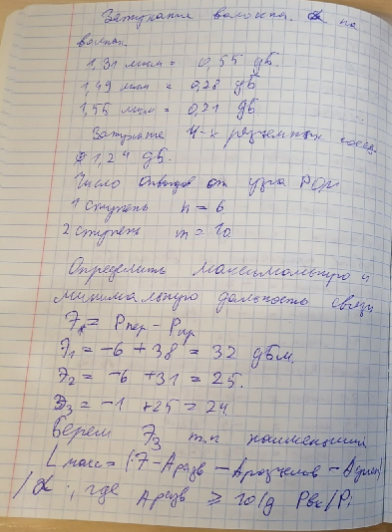 Затухание волокна. α на
волнах.
1,31 мкм = 0,55 дБ.
1,49 мкм = 0,28 дБ
1,55 мкм = 0,21 дБ
Затухание 4-х разъемных соед.
1,24 дБ.
Число от узла PON
1 ступень n = 6
2 ступень m = 10
Определить максимальную и
минимальную дальность связи
Э₁ = Рпер - Рпр
Э₁ = -6 + 38 = 32 дБм.
Э₂ = -6 + 31 = 25.
Э₃ = -1 + 25 = 24
Берем Э₃ т.к наименьший
L макс = (Э - Аразв - Аразъемов -
/α ; где Аразв ≥ 10lg Рвх/Рi